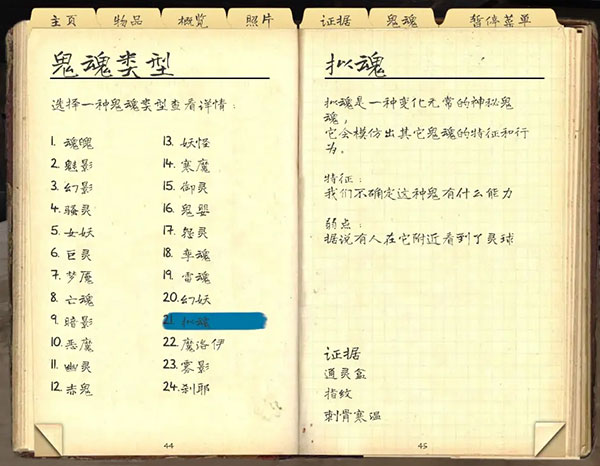 主页 物品 概览 照片 证据 鬼魂 暂停菜单
鬼魂类型
选择一种鬼魂类型查看详情：
1. 魂魄
2. 魅影
3. 幻影
4. 骚灵
5. 女妖
6. 巨灵
7. 梦魇
8. 亡魂
9. 暗影
10. 恶魔
11. 幽灵
12. 赤鬼
13. 妖怪
14. 寒魔
15. 御灵
16. 鬼婴
17. 怨灵
18. 孪魂
19. 雷魂
20. 幻妖
21. 拟魂
22. 魔洛伊
23. 雾影
24. 刹耶
44
拟魂
拟魂是一种变化无常的神秘鬼
魂，
它会模仿出其它鬼魂的特征和行
为。
特征：
我们不确定这种鬼有什么能力
弱点：
据说有人在它附近看到了灵球
证据
通灵盒
指纹
刺骨寒温
45